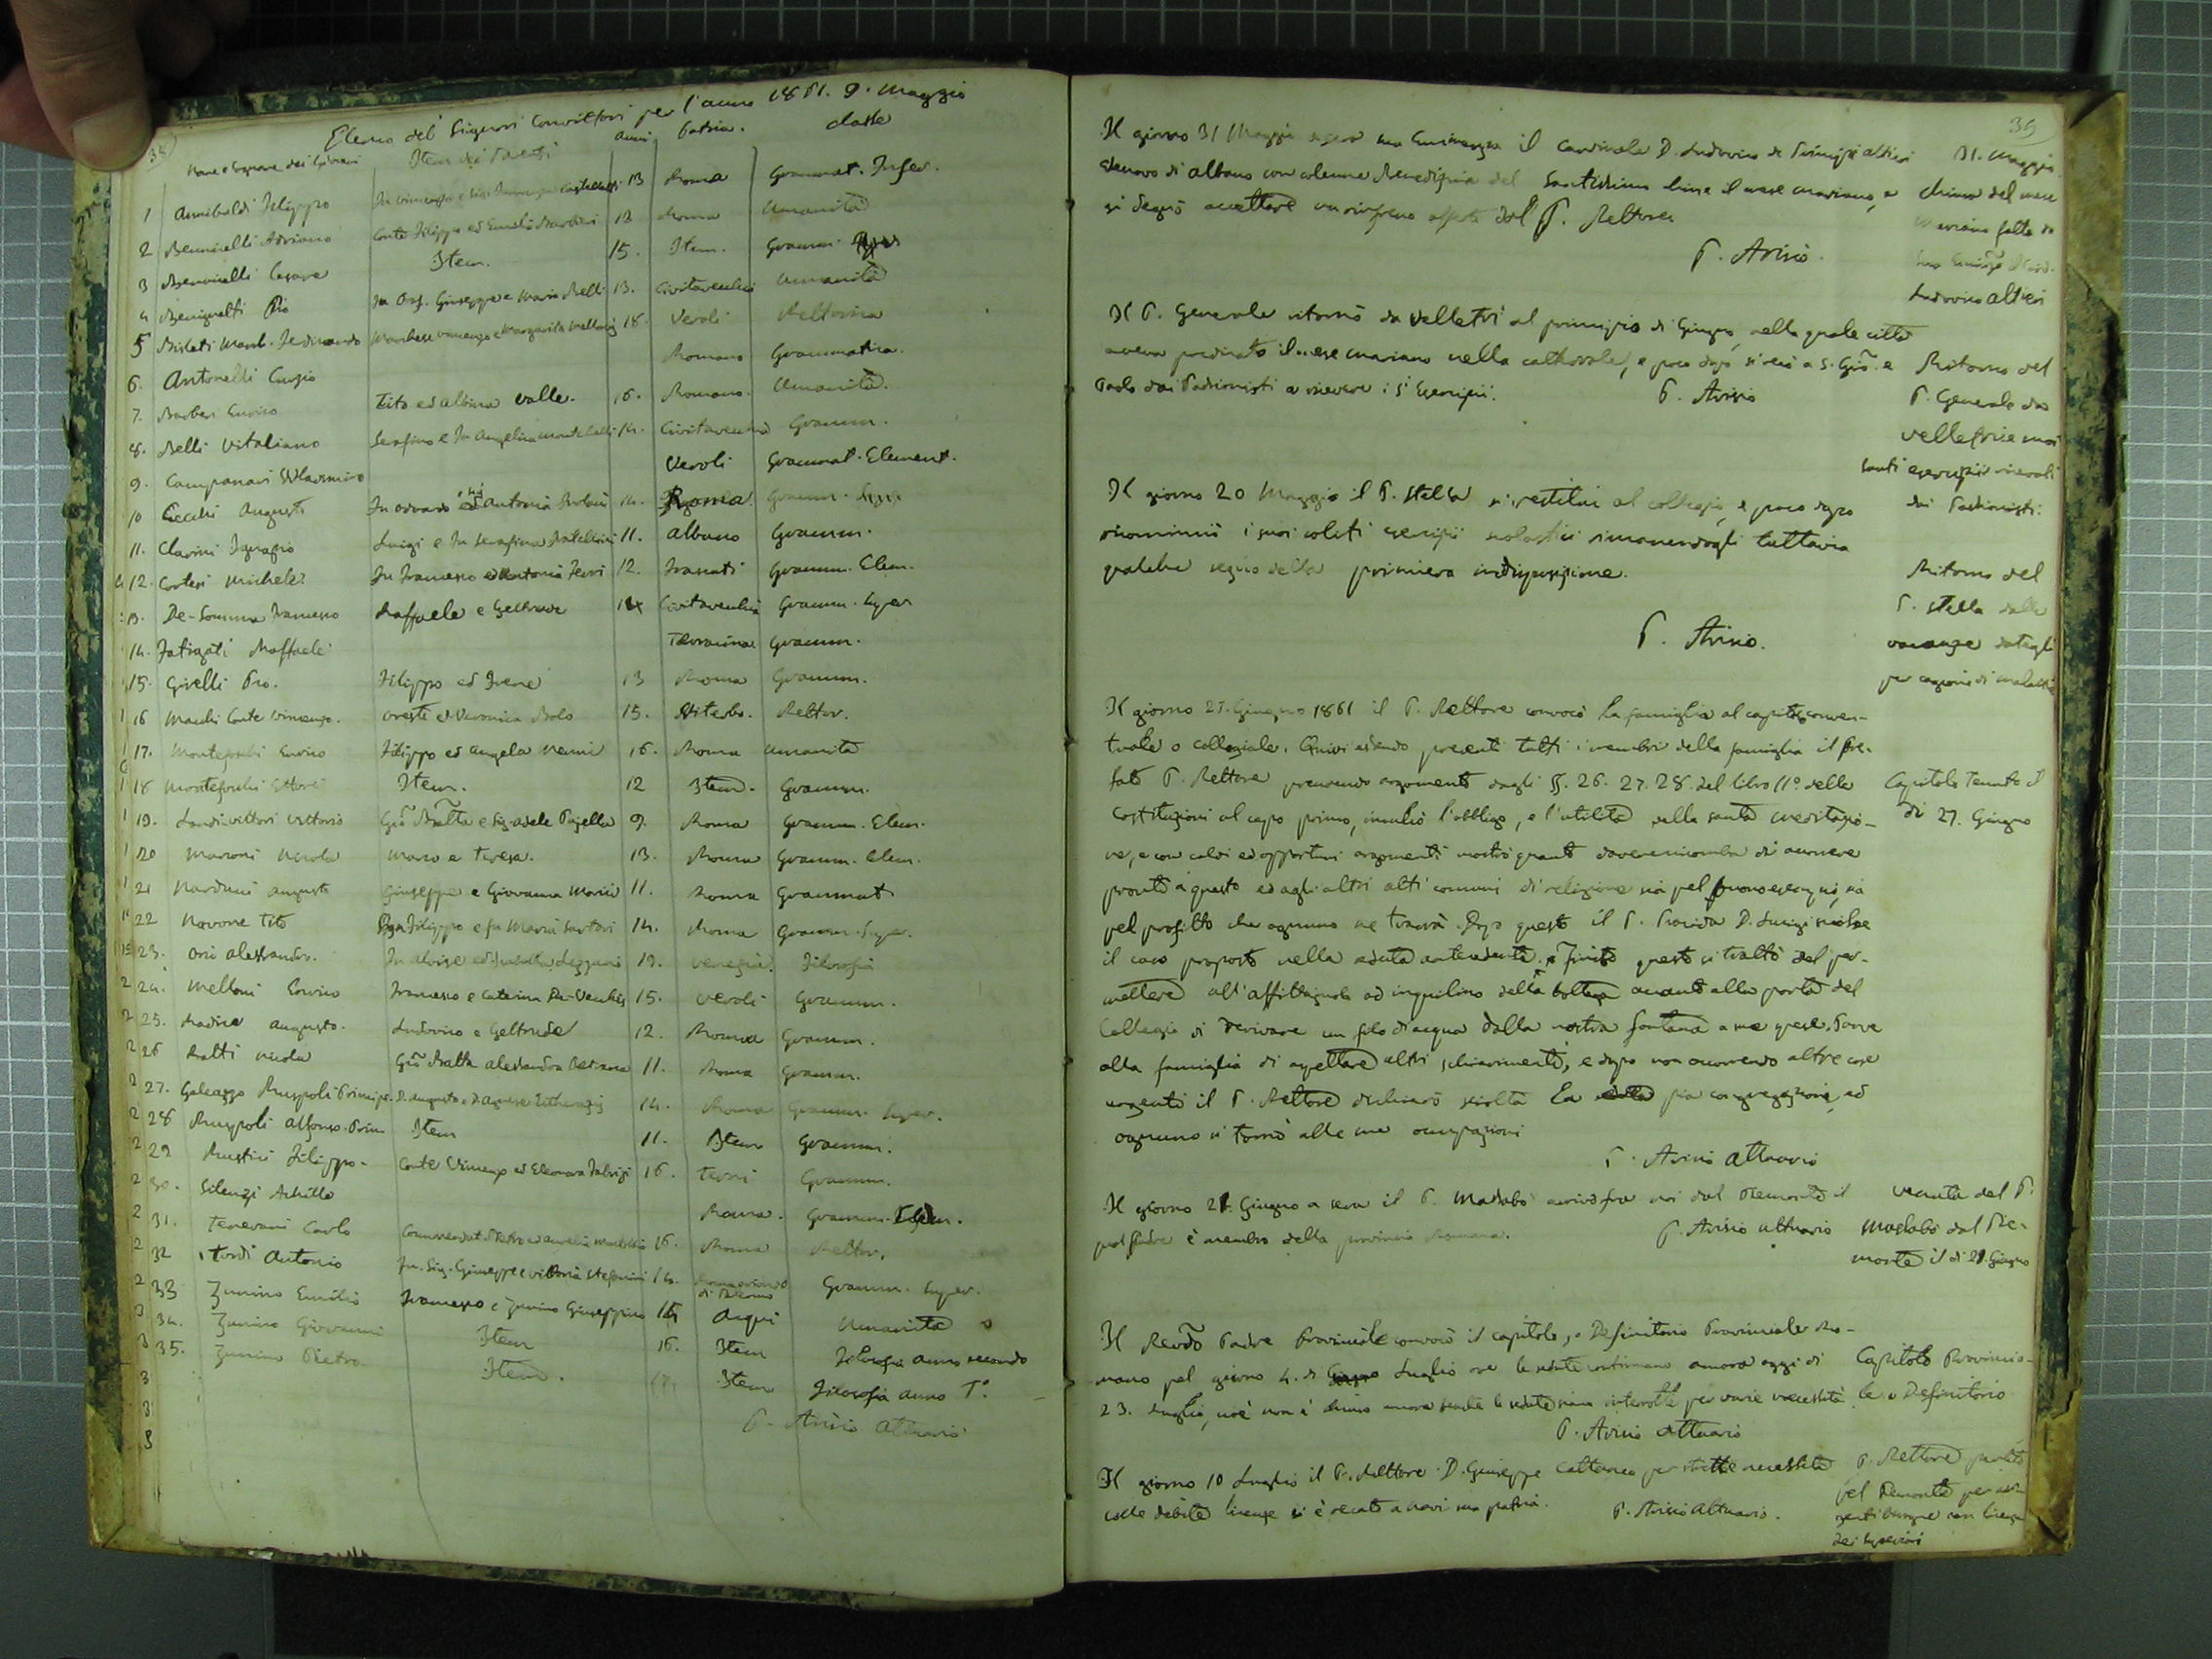 38
Elenco dei Signori Convittori per l'anno 1861. 9. Maggio
Nome e Cognome dei Giovani Item dei Parenti anni Patria. classe
1 Annibaldi Filippo 13 Roma Grammat. Infer.
2 Bennicelli Adriano Conte Filippo ed Emilia Barberi 12 Roma Umanità
3 Bennicelli Cesare Item. 15. Item. Gramm.
4 Benignetti Pio Giuseppe e Maria Belli 13. Civitavecchia Umanità
5 Bisleti March. Ferdinando Marchese Vincenzo e Margarita 18. Veroli Rettorica
6. Antonelli Romano Grammatica.
7. Barberi Enrico Tito ed Albina Valle. 16. Romano. Umanità.
8. Belli Vitaliano Serafino e Angelina 14. Civitavecchia Gramm.
9. Campanari Veroli Grammat. Element.
10 Cecchi Augusto Fu Odoardo ed Antonia 14. Roma Gramm. Super.
11. Clarini Ignazio Luigi e Fu Serafina 11. Albano Gramm.
12. Cortesi Michele Fu Francesco ed Antonia 12. Frascati Gramm. Elem.
13. De-Somma Francesco Raffaele e Geltrude 14 Civitavecchia Gramm. Super
14. Fatigati Raffaele Terracina Gramm.
15. Givelli Pio. Filippo ed Irene 13 Roma Gramm.
16 Macchi Conte Vincenzo. Oreste e Veronica 15. Viterbo. Rettor.
17. Enrico Filippo ed Angela 16. Roma Umanità
18 Ettore Item. 12 Item. Gramm.
19. Landi-vittori Vittorio Gio Batta e Sig. Adele Pagella 9. Roma Gramm. Elem.
20 Marconi Nicola Marco e Teresa. 13. Roma Gramm. Elem.
21 Narducci Augusto Giuseppe e Giovanna 11. Roma Grammat
22 Navone Tito Filippo e fu Maria Sartori 14. Roma Gramm. Super.
23. Orsi Alessandro. Fu Aloise ed 19. Venezia. Filosofia
24. Melloni Enrico Francesco e Caterina De-Vecchis 15. Veroli Gramm.
25. Radice Augusto. Ludovico e Geltrude 12. Roma Gramm.
26 Ratti Nicola Gio Batta Alessandra 11. Roma Gramm.
27. Galeazzo Ruspoli Principe. D. Augusto e D. Agnese 14. Roma Gramm. Super.
28 Ruspoli Alfonso. Prin Item 11. Item Gramm.
29 Rustici Filippo. Conte Vincenzo ed Eleonora Fabrizi 16. Terni Gramm.
30. Silenzi Achille Roma. Gramm. Elem.
31. Tenerani Carlo Commendat. Pietro ed Aurelia 16. Roma Rettor.
32 Tordi Antonio Fu Sig. Giuseppe e Vittoria Stefanini 14. Gramm. Super.
33 Zunino Emilio Francesco e Zunino Giuseppina 14 Acqui Umanità
34. Zunino Giovanni Item 16. Item Filosofia anno secondo
35. Zunino Pietro. Item. Item Filosofia anno 1°.
P. Avisio Attuario
35
Il giorno 31 Maggio a sera sua Eminenza il Cardinale D. Ludovico de Principi Altieri
Vescovo di Albano con solenne Benedizione del Santissimo chiuse il mese mariano, e
si degnò accettare un rinfresco offerto dal P. Rettore
P. Avisio.
31. Maggio
chiusa del mese
mariano fatta da
Sua Eminza il Card.
Ludovico Altieri
Il P. Generale ritornò da Velletri al principio di Giugno, nella quale città
aveva predicato il mese mariano nella cattedrale, e poco dopo si recò a S. Gio. e
Paolo dai Passionisti a ricevere i Si Esercizii. P. Avisio
Ritorno del
P. Generale da
Velletri e suoi
santi esercizii ricevuti
dai Passionisti.
Il giorno 20 Maggio il P. Stella si restituì al collegio, e poco dopo
ricominciò i suoi soliti esercizii scolastici rimanendogli tuttavia
qualche segno della primiera indisposizione.
P. Avisio.
Ritorno del
P. Stella dalle
vacanze dategli
per cagione di malattia
Il giorno 27. Giugno 1861 il P. Rettore convocò la famiglia al capitolo conven-
tuale o collegiale. Quivi essendo presenti tutti i membri della famiglia il pre-
fato P. Rettore prendendo argomento dagli §. 26. 27. 28. del libro 11° delle
Costituzioni al capo primo, inculcò l'obbligo, e l'utilità della santa meditazio-
ne, e con caldi ed opportuni argomenti mostrò quanto dovere incomba di accorrere
pronti a questo ed agli altri atti comuni di religione sia pel buono esempio, sia
pel profitto che ognuno ne trarrà. Dopo questo il P. Procida D. Luigi sciolse
il caso proposto nella seduta antecedente. Finito questo si trattò del per-
mettere all'affittajuolo od inquilino della bottega avanti alla porta del
Collegio di derivare un filo d'acqua dalla nostra fontana a sue spese. Parve
alla famiglia di aspettare altri schiarimenti, e dopo non occorrendo altre cose
urgenti il P. Rettore dichiarò sciolta la pia congregazione, ed
ognuno si tornò alle sue occupazioni
P. Avisio Attuario
Capitolo tenuto il
dì 27. Giugno
Il giorno 21. Giugno a sera il P. Maslabò arrivò fra noi dal Piemonte il
qual Padre è membro della provincia Romana. P. Avisio Attuario
Venuta del P.
Maslabò dal Pie-
monte il dì 21. Giugno
Il Revdo Padre Provinciale convocò il capitolo, o Definitorio Provinciale Ro-
mano pel giorno 4. di Luglio ove le sedute continuano ancora oggi dì
23. Luglio, cioè non è chiuso ancora benchè le sedute siano interrotte per varie necessità.
P. Avisio Attuario
Capitolo Provincia-
le o Definitorio
Il giorno 10 Luglio il P. Rettore D. Giuseppe Cattaneo per strette necessità
colle debite licenze si è recato a Novi sua patria. P. Avisio Attuario.
P. Rettore partito
pel Piemonte per ur-
genti bisogni con licenza
dei Superiori